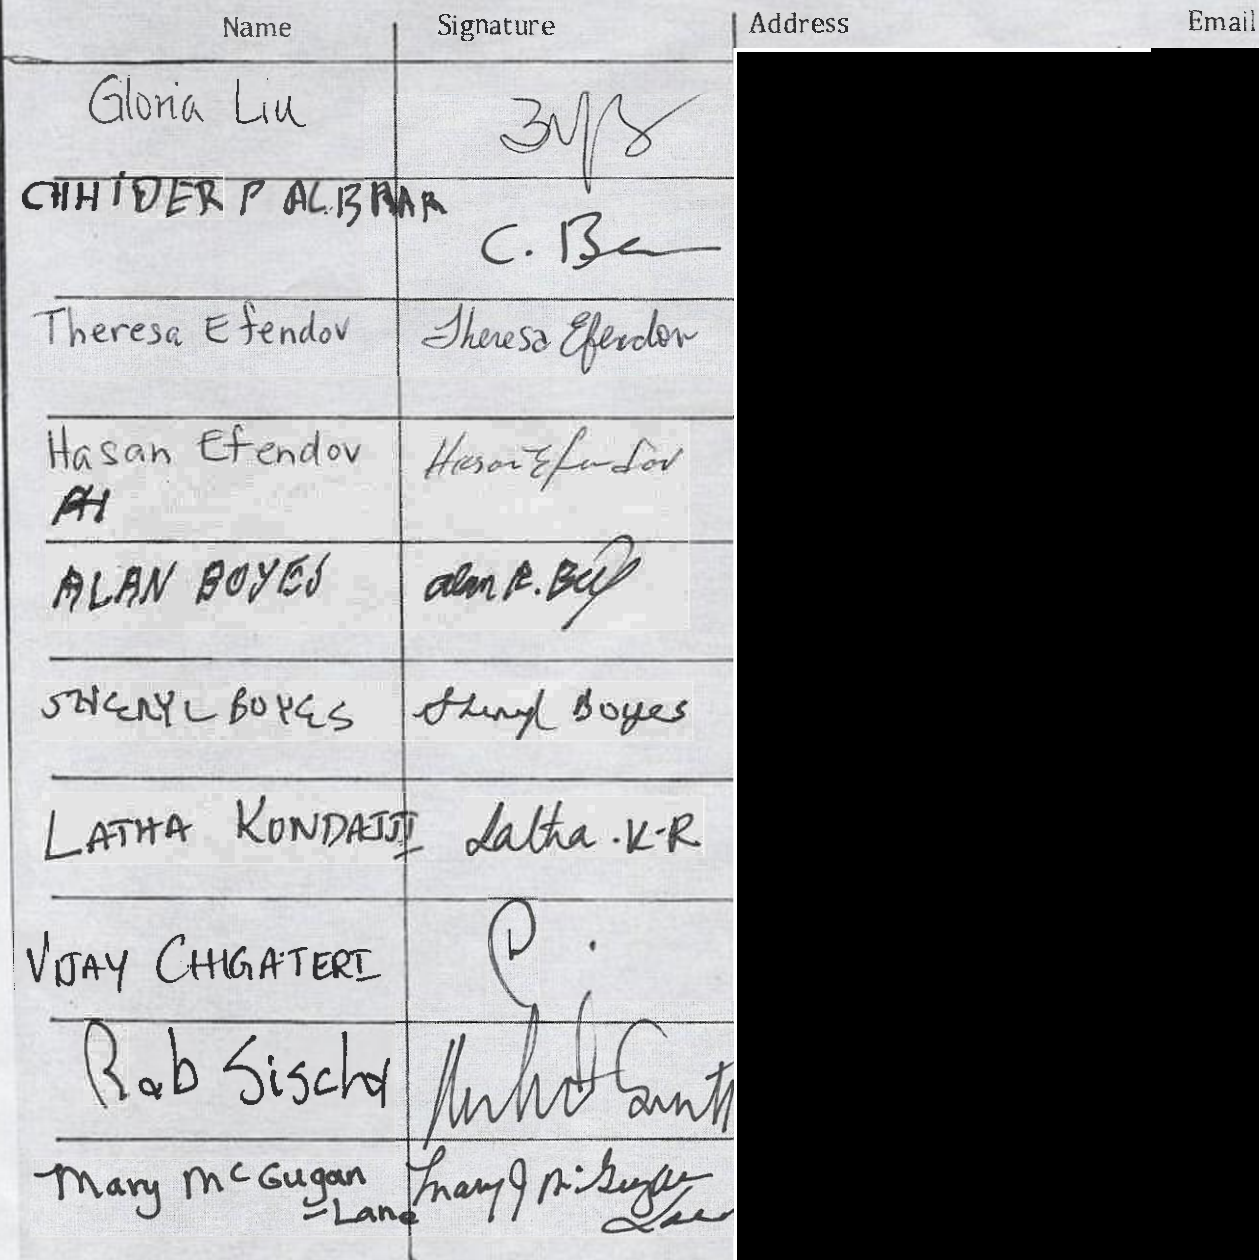 Name Signature Address Email
Gloria Liu
CHHIDER P ALBRAR C. B
Theresa Efendov Theresa Efendov
Hasan Efendov Hasan Efendov
AH
ALAN BOYES alan R.
SHERYL BOYES Sheryl Boyes
LATHA KONDAJJI Latha .K-R
VIJAY CHIGATERI
Rob
Mary McGugan Mary J McGugan
-Lane Lane